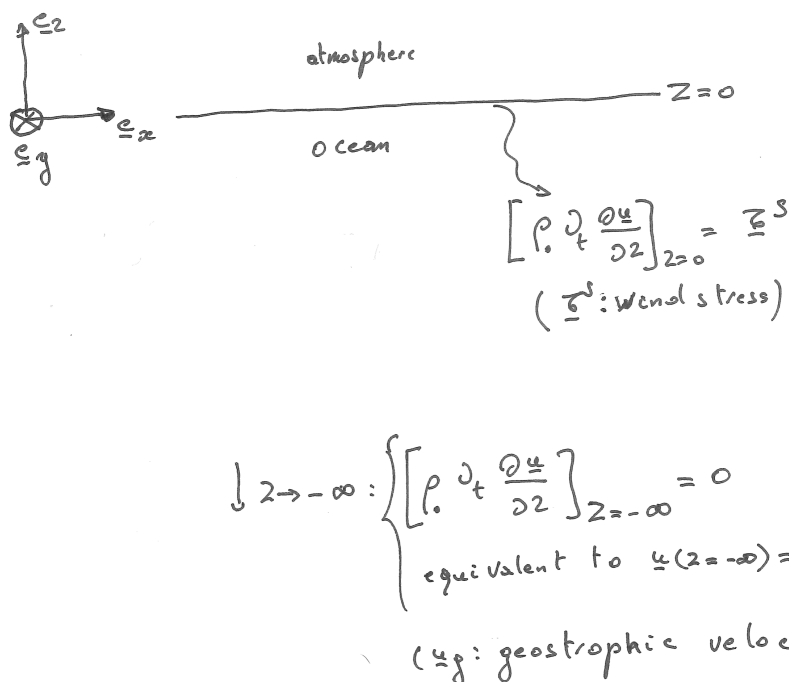 e_z
atmosphere
z=0
e_x
e_y
ocean
[ρ₀ ν_t ∂u/∂z]_{z=0} = τ^s
(τ^s: wind stress)
↓ z→-∞ : { [ρ₀ ν_t ∂u/∂z]_{z=-∞} = 0
equivalent to u(z=-∞) =
(u_g: geostrophic veloc